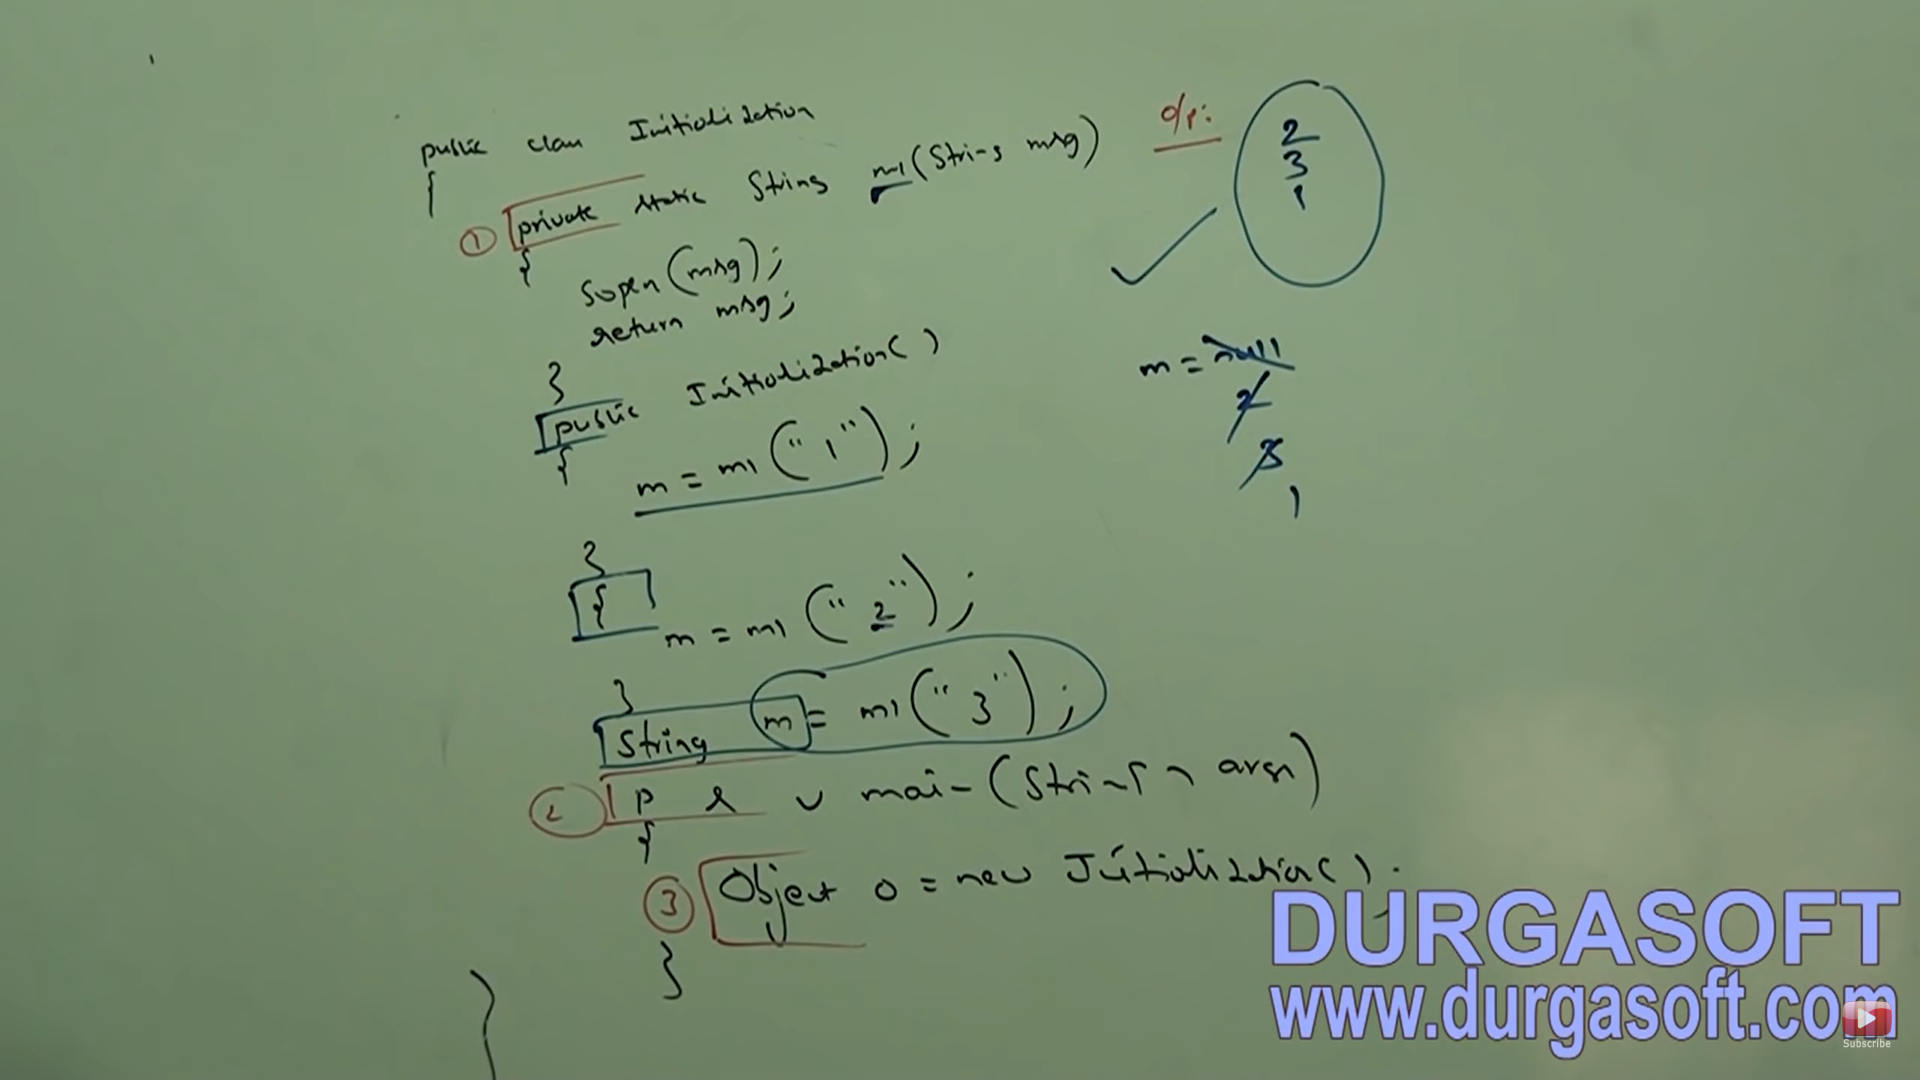 public class Initialization
{
① private static String m1(String msg)
{
Sopln(msg);
return msg;
}
public Initialization()
{
m = m1("1");
}
{
m = m1("2");
}
String m = m1("3");
② p s v main(String[] args)
{
③ Object o = new Initialization();
}
}
o/p:
2
3
1
m = null
2
3
1
DURGASOFT
www.durgasoft.com
Subscribe